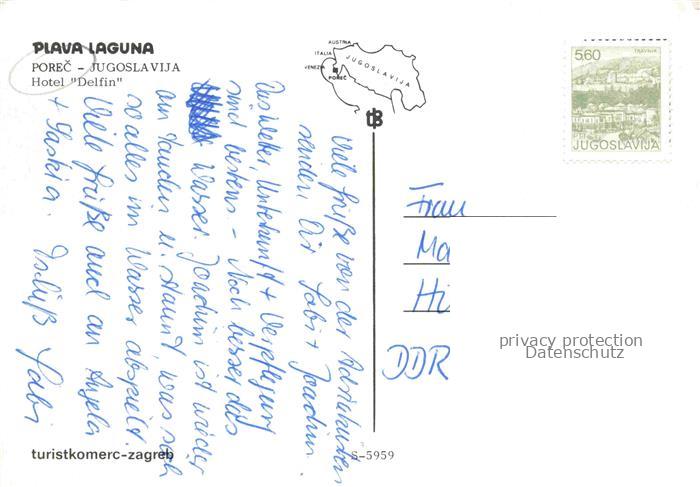 PLAVA LAGUNA
POREČ – JUGOSLAVIJA
Hotel "Delfin"
AUSTRIA
ITALIA
VENEZIA
JUGOSLAVIJA
POREČ
tB
5,60
TRAVNIK
JUGOSLAVIJA
Viele Grüße von der Adriaküste
senden Dir Gabi + Joachim.
Das Wetter, Unterkunft + Verpflegung
sind bestens. – Noch besser das
Wasser. Joachim ist wieder
am Tauchen u. staunt, was sich
so alles im Wasser abspielt.
Viele Grüße auch an Angela
+ Saskia. Tschüß Gabi
Frau
Ma
Hi
DDR
privacy protection
Datenschutz
turistkomerc-zagreb
S-5959